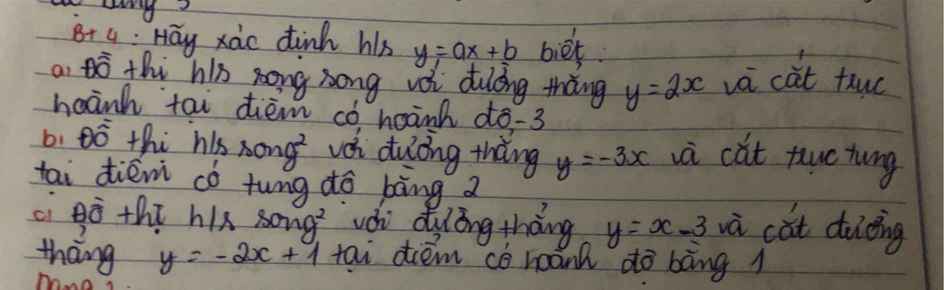 BT 4 : Hãy xác định h/s y = ax + b biết :
a) Đồ thị h/s song song với đường thẳng y = 2x và cắt trục
hoành tại điểm có hoành độ -3
b) Đồ thị h/s song² với đường thẳng y = -3x và cắt trục tung
tại điểm có tung độ bằng 2
c) Đồ thị h/s song² với đường thẳng y = x - 3 và cắt đường
thẳng y = -2x + 1 tại điểm có hoành độ bằng 1